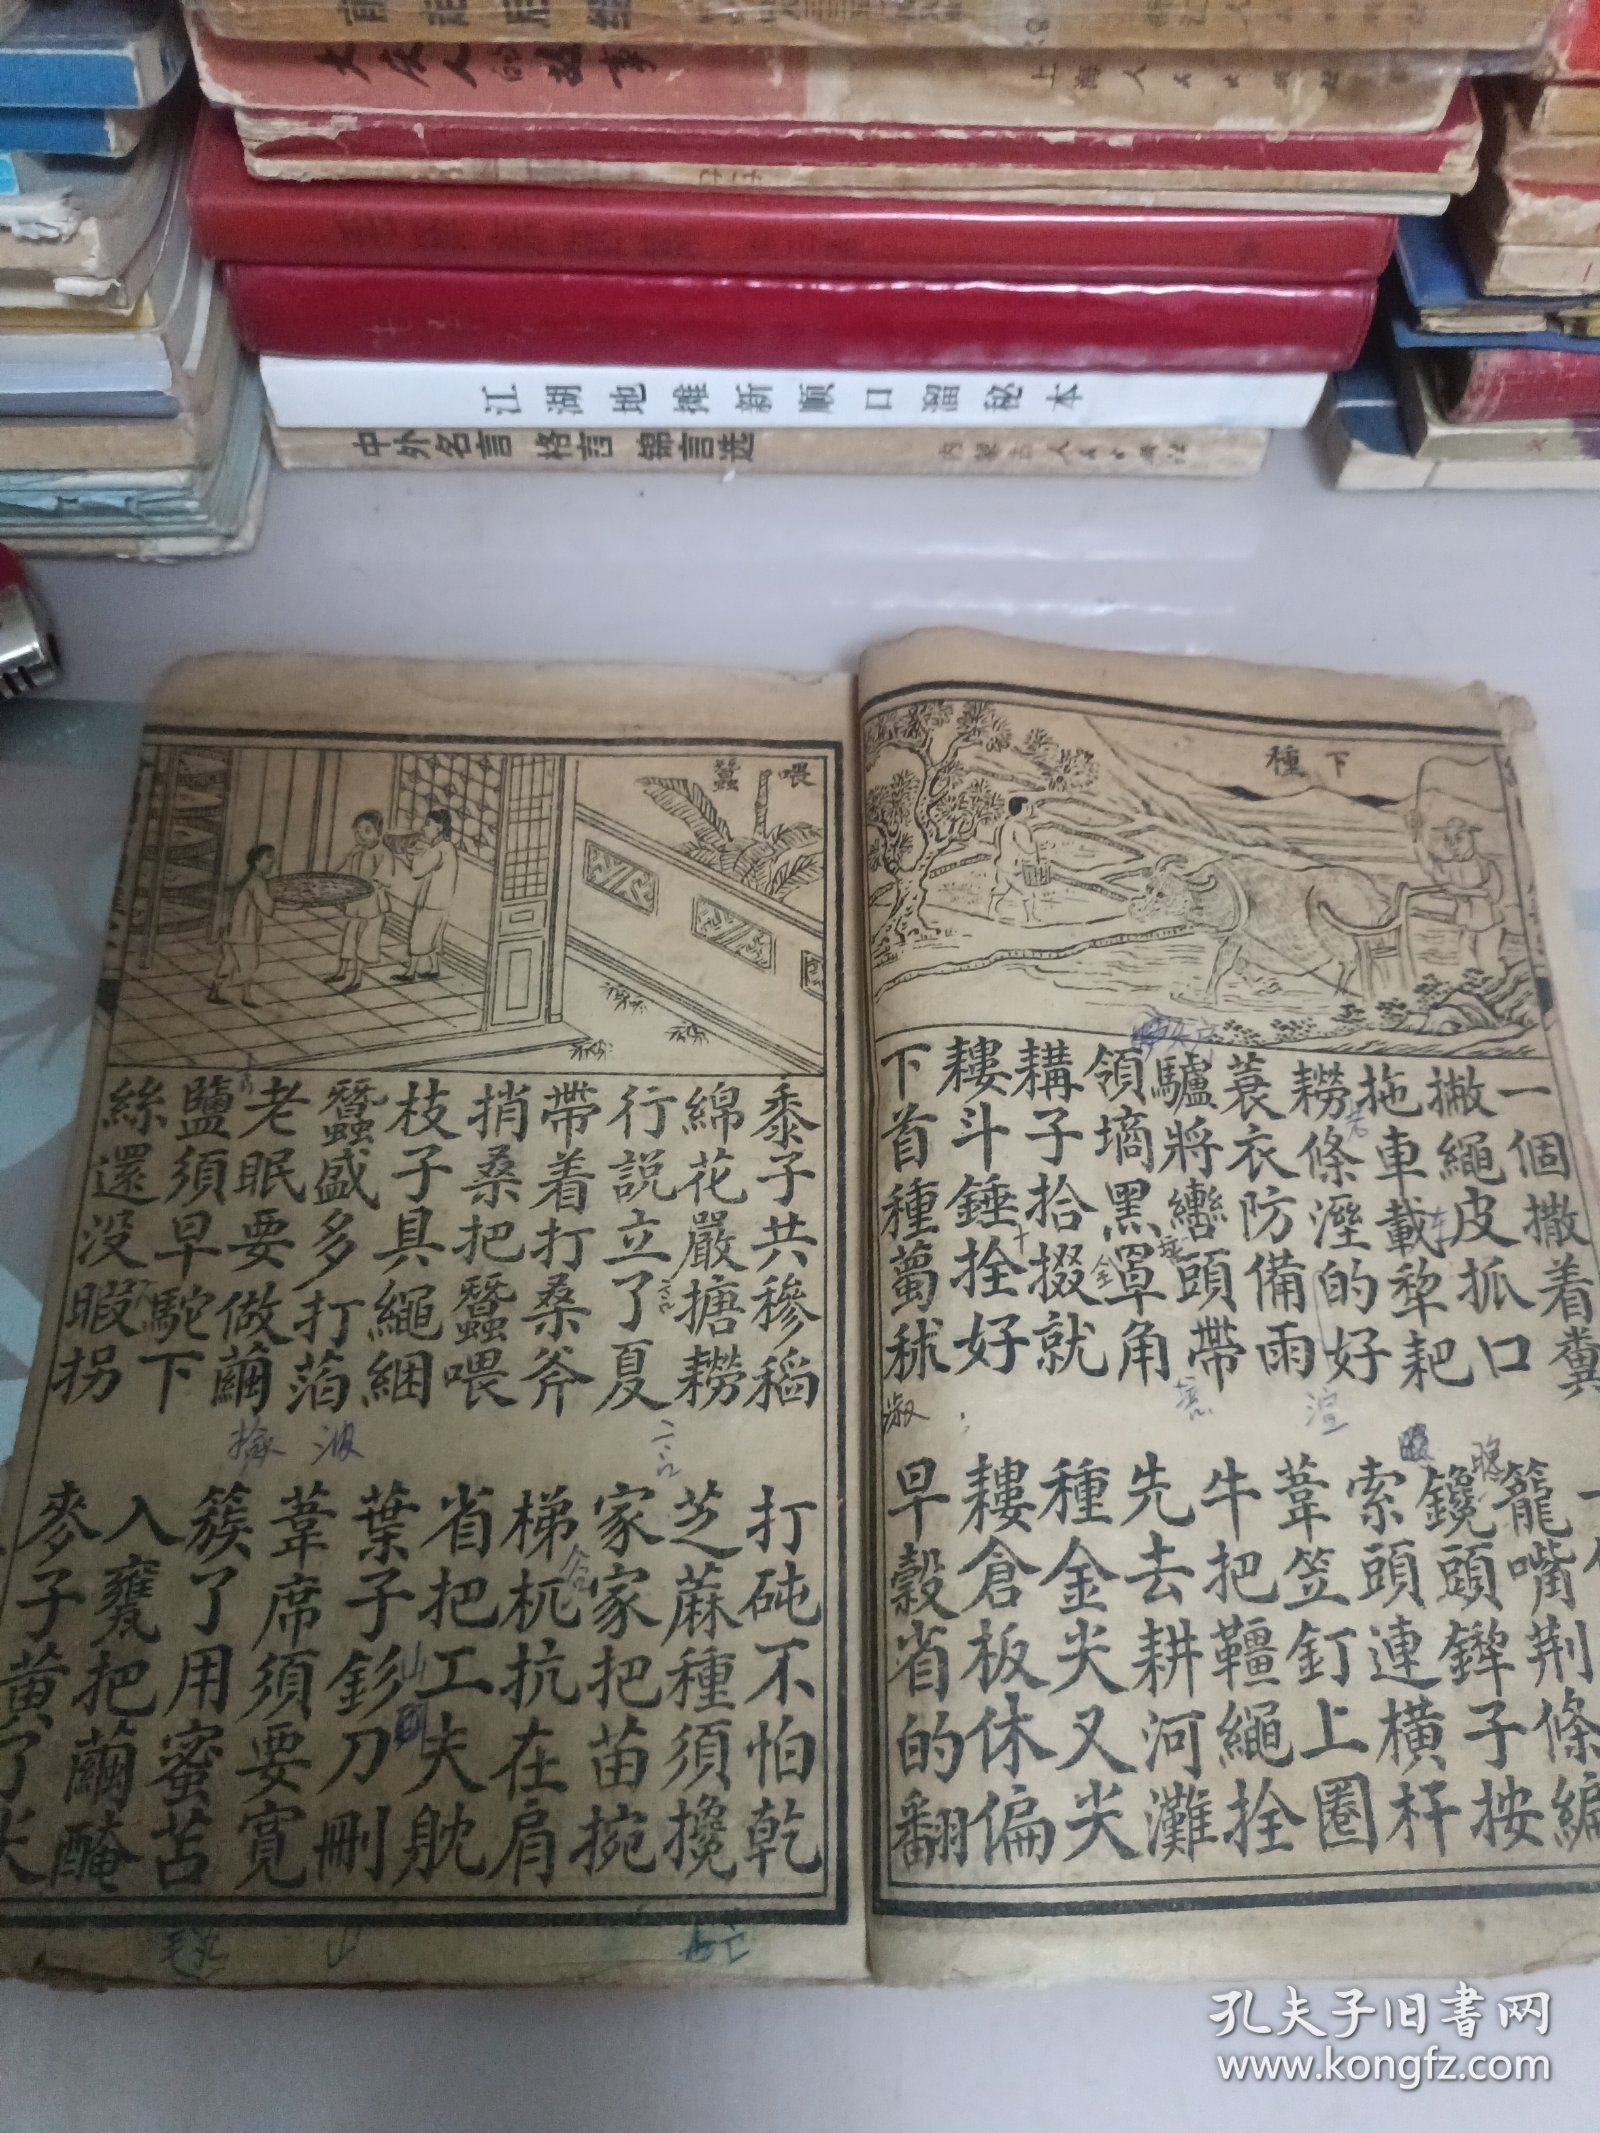 大众人的故事
上海人民出版社
江湖地摊新顺口溜秘本
中外名言 格言 锦言选
内蒙古人民出版社
下種
一個撒着糞
撇繩皮抓口
拖車載犂耙
耮條溼的好
蓑衣防備雨
驢將轡頭帶
領墒黑罩角
耩子拾掇就
耬斗錘拴好
下首種蔔秫
籠嘴荆條編
鑱頭鏵子按
索頭連橫杆
葦笠釘上圈
牛把韁繩拴
先去耕河灘
種金尖又尖
耬倉板休偏
早穀省的翻
喂蠶
黍子共穇稻
綿花嚴搪耮
行説立了夏
帶着打桑斧
捎桑把蠶喂
枝子具繩綑
蠶盛多打箔
老眠要做繭
鹽須早駝下
絲還没暇拐
打砘不怕乾
芝蔴種須攙
家家把苗㨶
梯杌抗在肩
省把工夫躭
葉子釤刀刪
葦席須要寬
簇了用蜜苫
入甕把繭醃
麥子黄了尖
孔夫子旧书网
www.kongfz.com